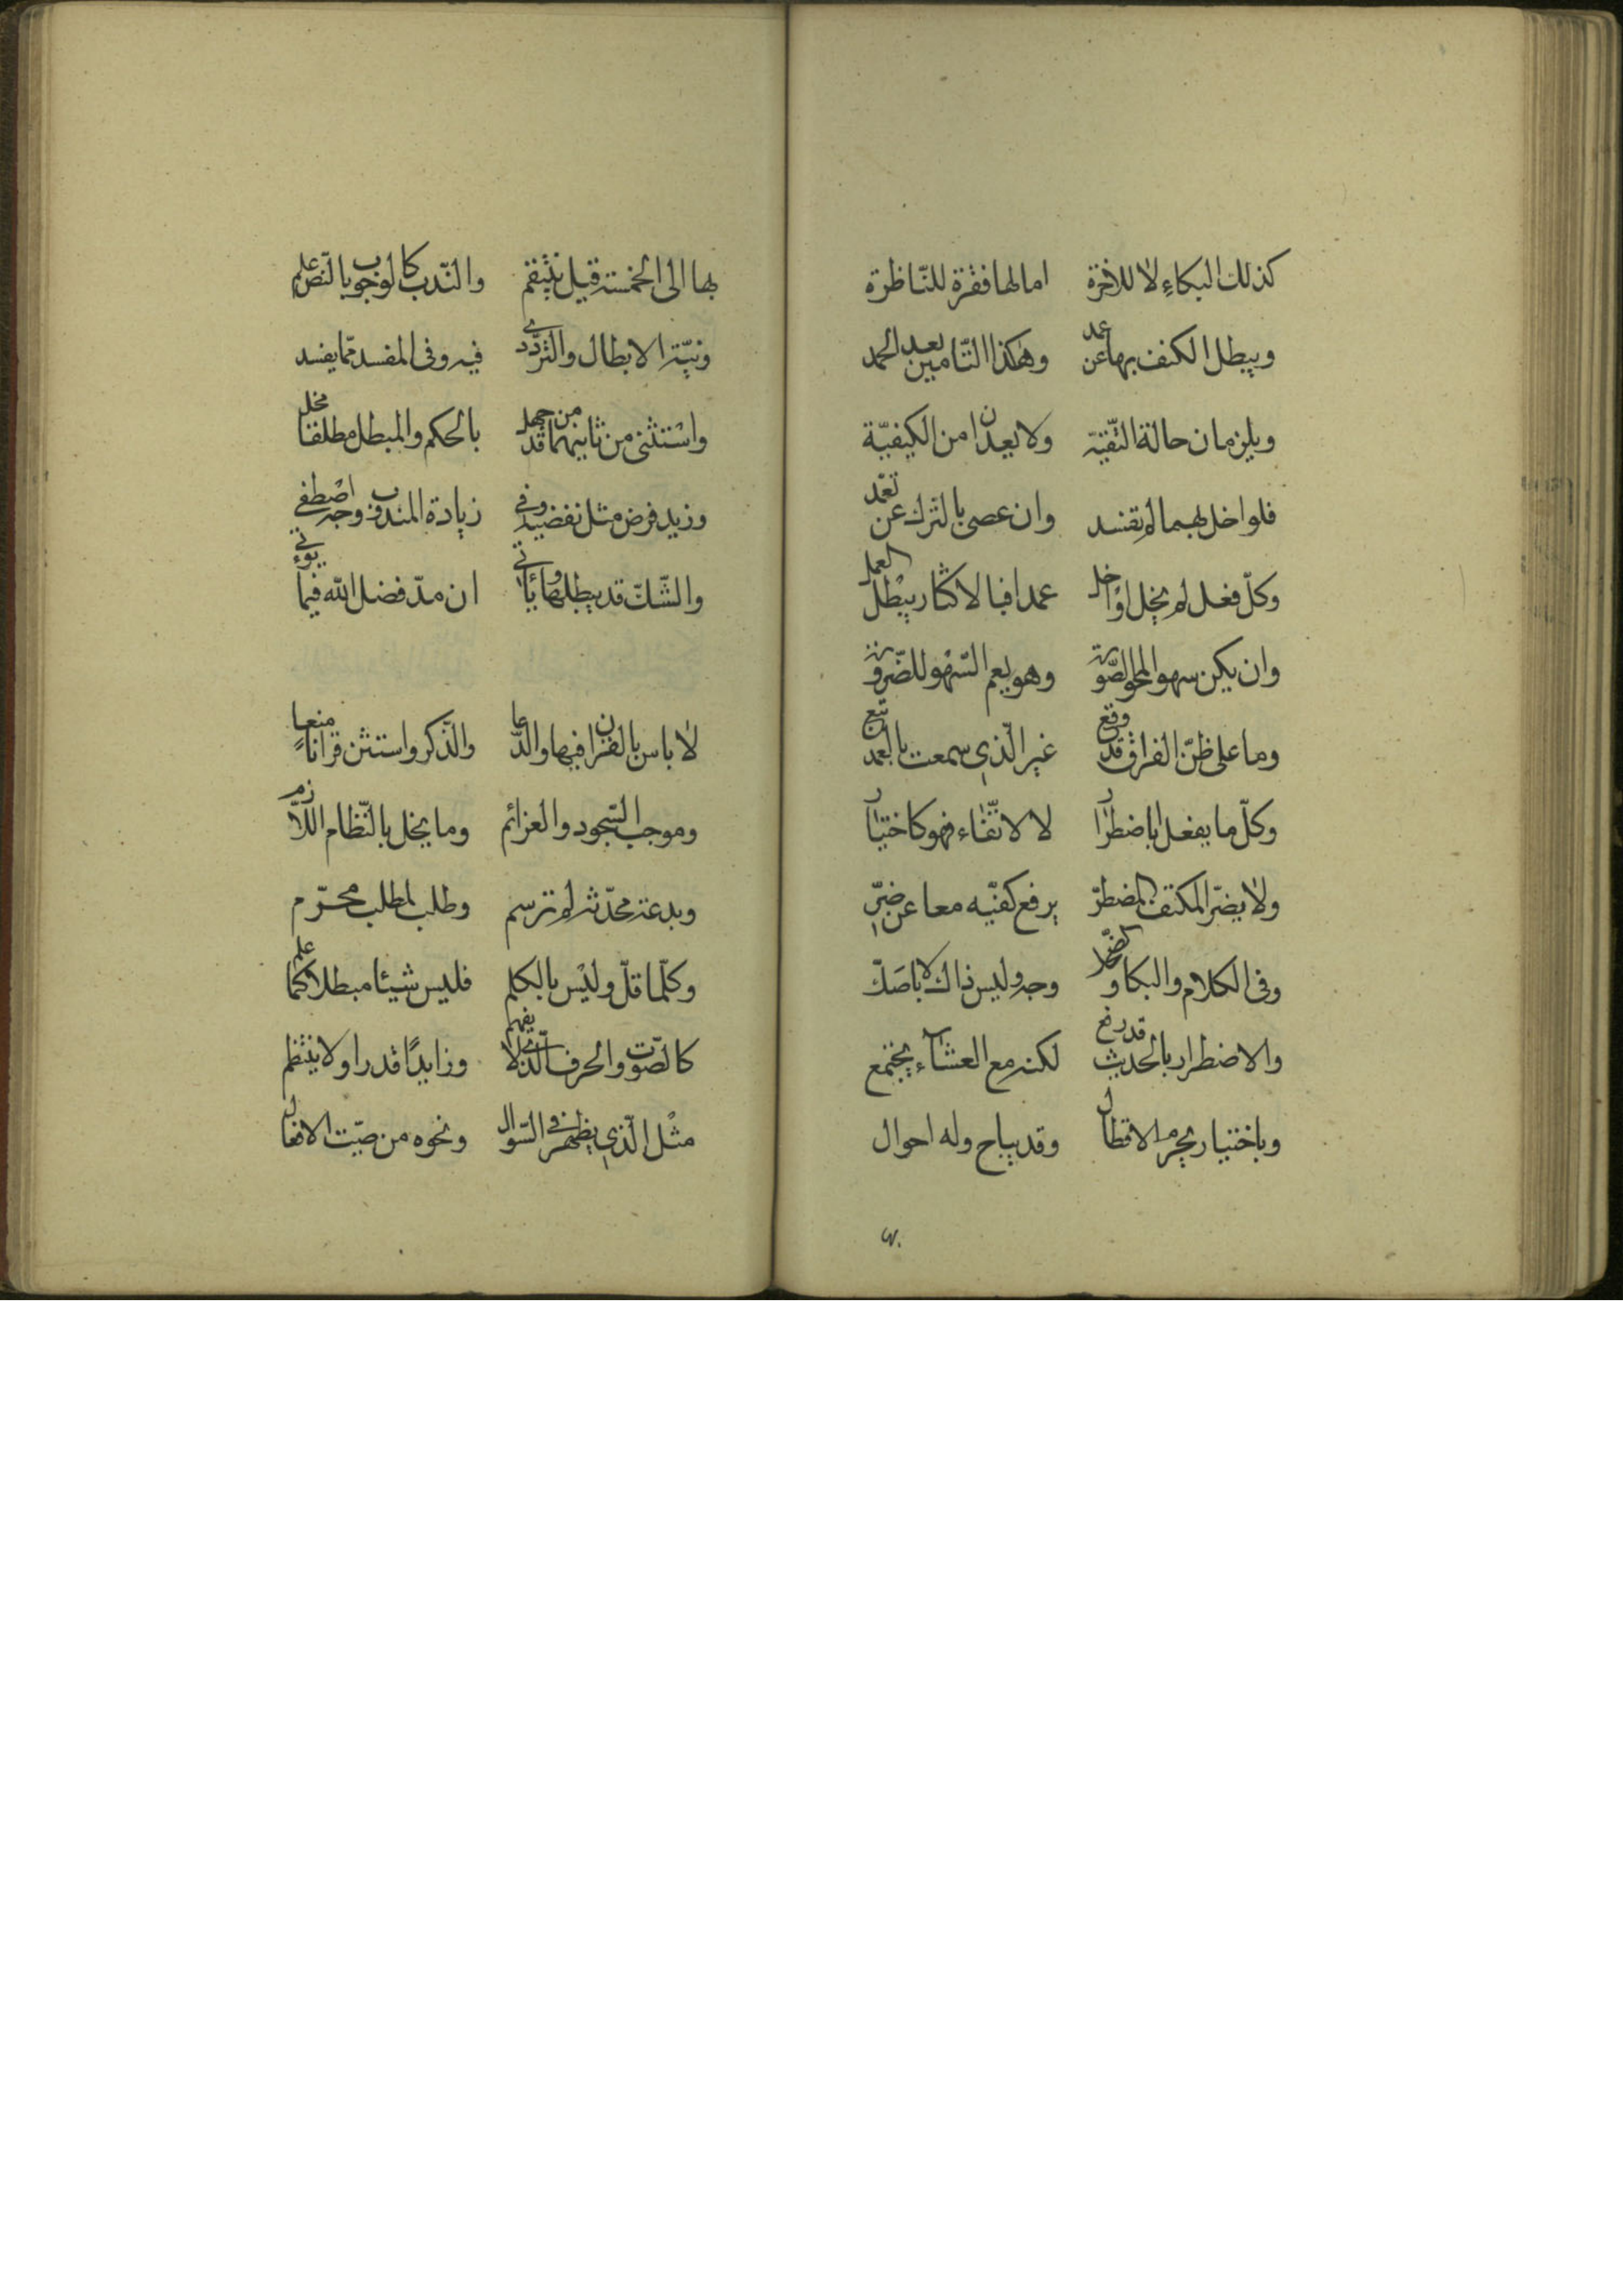 كذلك البكاء لا للاخرة امالها فقرة للناظرة
ويبطل الكتف بها عن عمد وهكذا التامين بعد الحمد
ويلزمان حالة التقية ولا يعدان من الكيفية
فلو اخل بهما لم تفسد وان عصى بالترك عن تعمد
وكلّ فعل لم يخل او اخل عمدا فبالاكثار يبطل العمل
وان يكن سهوا لمحو الصورة وهو يعم السهو للضرورة
وما على ظنّ الفراق قد وقع غير الّذي سمعت بالعمد تبع
وكلّ ما يفعل باضطرار لا لاتّقاء فهو كاختيار
ولا يضرّ المكتف المضطرّ يرفع كفّيه معا عن ضرّ
وفى الكلام والبكا والضحك وجه وليس ذاك لا باصَكّ
والاضطرار بالحديث قد رفع لكنه مع العشاء يجتمع
وباختيار يحرم الاقطال وقد يباح وله احوال
بها الى الخمسة قيل تثبقم والنّدب كالوجوب بالنّص علم
ونيّة الابطال والتردّد فيه وفى المفسد ممّا يفسد
واستثنى من ثانيهما قد من جهل بالحكم والمبطل مطلقا مخل
وزيد فرض مثل نفضيه وفي زيادة المندوب وجه اصْطفي
والشّكّ قد يبطلها وياتى ان مدّ فضل الله فيما يؤتى
لا باس بالقران فيها والدّعا والذّكر واستثن قرانا منعا
وموجب السّجود والعزائم وما يخل بالنّظام اللّازم
وبدعة محدّثة لم ترسم وطلب لمطلب محرّم
وكلّما قلّ وليْس بالكلم فليس شيئا مبطلا كما علم
كالصّوت والحرف الّذى لا يفهم وزايدًا قدرا ولا ينتظم
مثْل الّذي يظهر فى السّوال ونحوه من صيّت الافعال